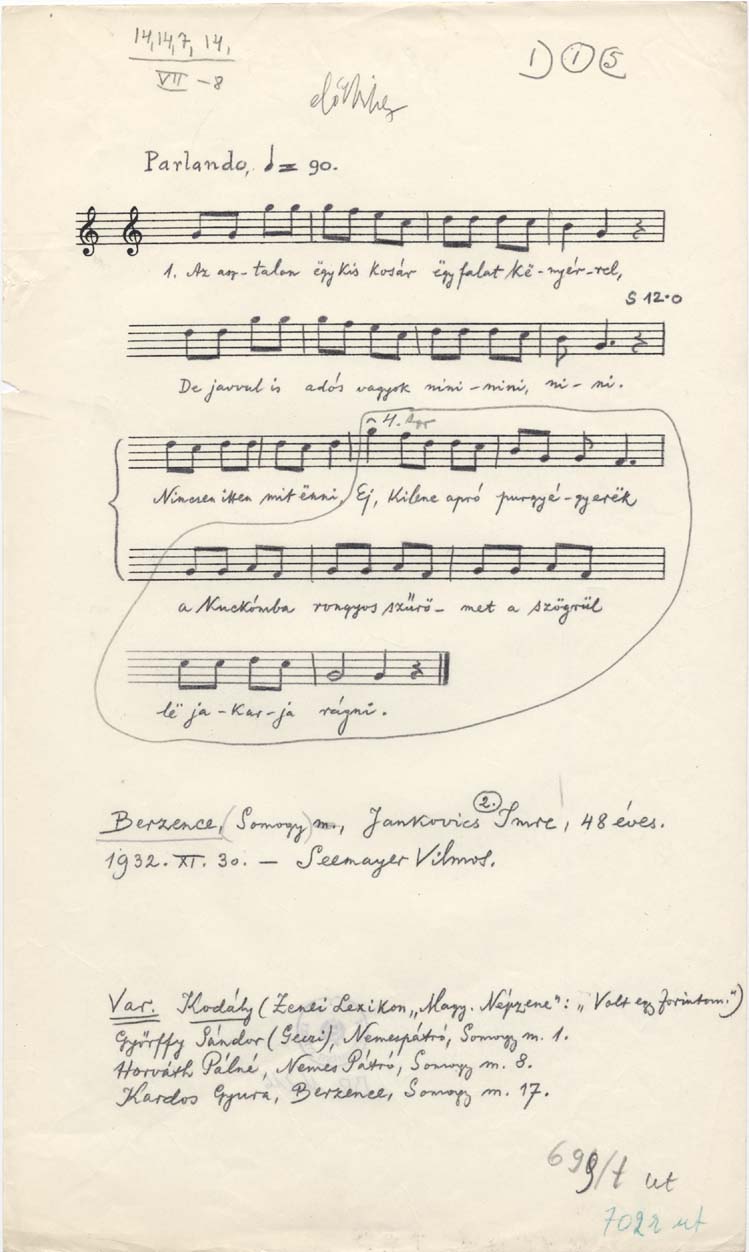 14,14,7, 14.
VII - 8
1) 1 5
Parlando, ♩= 90.
1. Az asz-talon ëgy kis kosár ëgy falat kë-nyér-rel,
S 12.0
De javvul is adós vagyok nini-nini, ni-ni.
4.
Nincsen itten mit ënni, Ej, kilenc apró purgyé-gyerëk
a kuckómba rongyos szűrö-met a szögrül
lë ja-kar-ja rágni.
2.
Berzence, (Somogy) m., Jankovics Imre, 48 éves.
1932. XI. 30. — Seemayer Vilmos.
Var. Kodály (Zenei Lexikon „Magy. Népzene": „Volt egy forintom.")
Györffy Sándor (Geczi), Nemespátró, Somogy m. 1.
Horváth Pálné, Nemes Pátró, Somogy m. 8.
Kardos Gyura, Berzence, Somogy m. 17.
699/t ut
702r ut